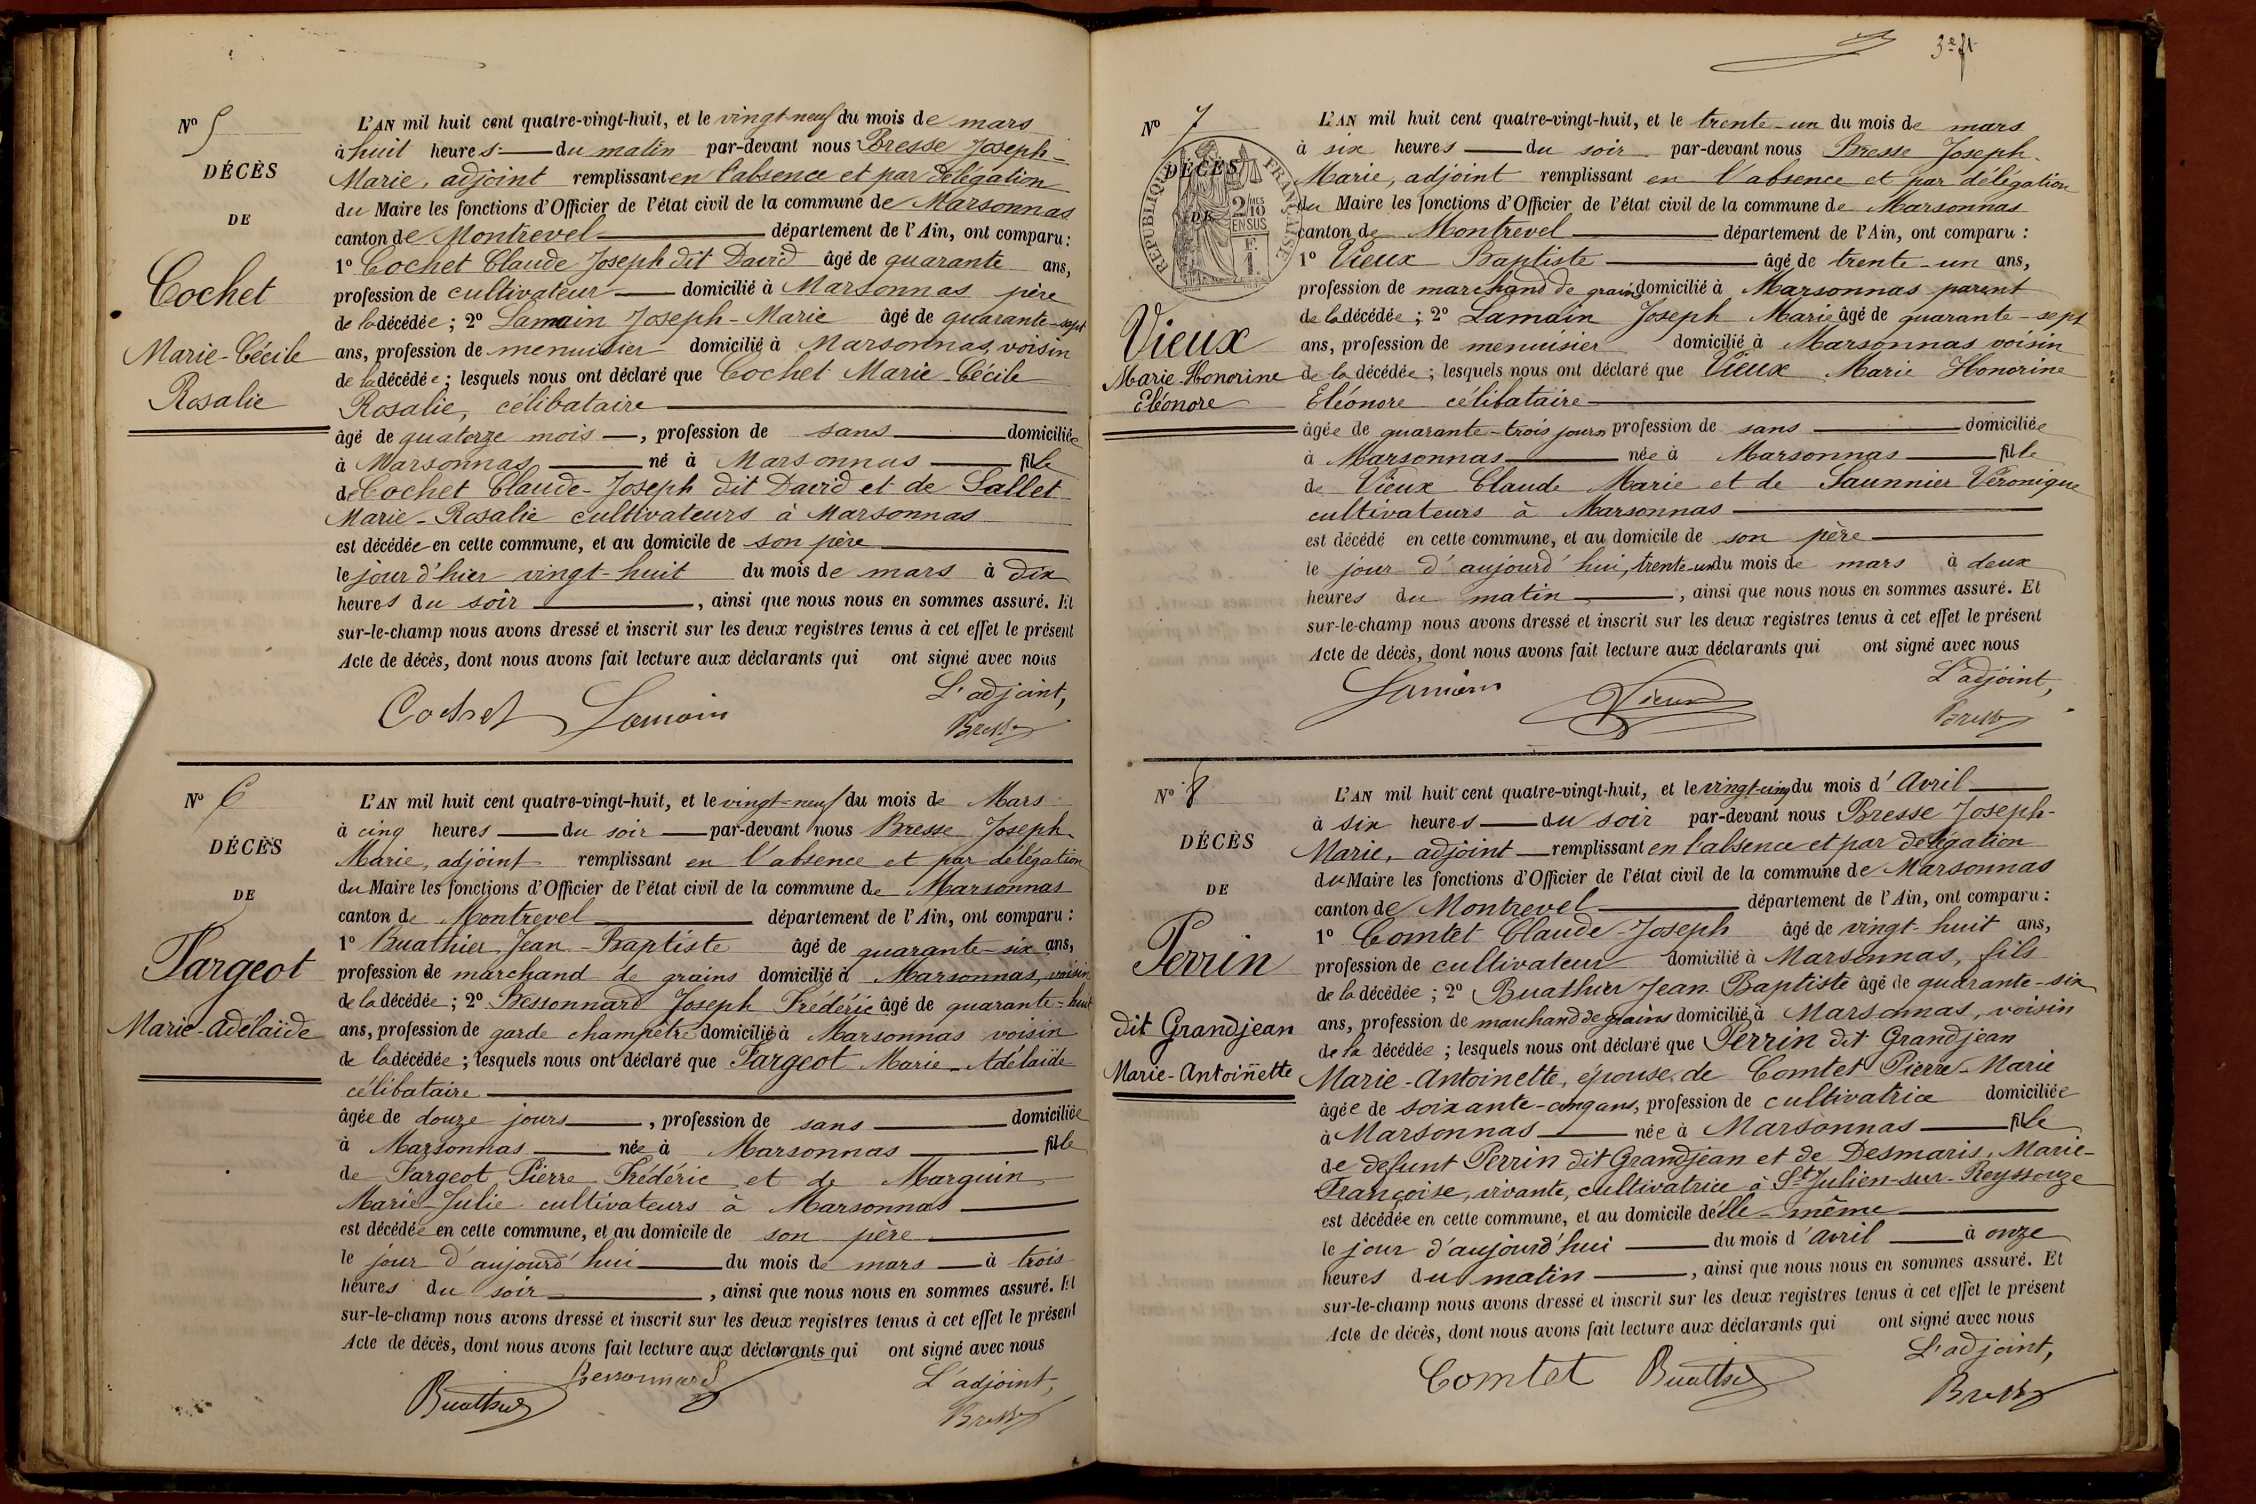 Nº 5
DÉCÈS
DE
Cochet
Marie-Cécile
Rosalie
L'AN mil huit cent quatre-vingt-huit, et le vingt-neuf du mois de mars
à huit heures du matin par-devant nous Bresse Joseph-
Marie, adjoint remplissant en l'absence et par délégation
du Maire les fonctions d'Officier de l'état civil de la commune de Marsonnas
canton de Montrevel département de l'Ain, ont comparu :
1º Cochet Claude Joseph dit David âgé de quarante ans,
profession de cultivateur domicilié à Marsonnas père
de la décédée ; 2º Lamain Joseph-Marie âgé de quarante-sept
ans, profession de menuisier domicilié à Marsonnas, voisin
de la décédée ; lesquels nous ont déclaré que Cochet Marie-Cécile
Rosalie, célibataire
âgé de quatorze mois, profession de sans domiciliée
à Marsonnas né à Marsonnas fille
de Cochet Claude-Joseph dit David et de Sallet
Marie-Rosalie cultivateurs à Marsonnas
est décédée en cette commune, et au domicile de son père
le jour d'hier vingt-huit du mois de mars à dix
heures du soir, ainsi que nous nous en sommes assuré. Et
sur-le-champ nous avons dressé et inscrit sur les deux registres tenus à cet effet le présent
Acte de décès, dont nous avons fait lecture aux déclarants qui ont signé avec nous
L'adjoint,
Cochet Lamain Bresse
Nº 6
DÉCÈS
DE
Fargeot
Marie-Adélaïde
L'AN mil huit cent quatre-vingt-huit, et le vingt-neuf du mois de Mars
à cinq heures du soir par-devant nous Bresse Joseph-
Marie, adjoint remplissant en l'absence et par délégation
du Maire les fonctions d'Officier de l'état civil de la commune de Marsonnas
canton de Montrevel département de l'Ain, ont comparu :
1º Buathier Jean-Baptiste âgé de quarante-six ans,
profession de marchand de grains domicilié à Marsonnas, voisin
de la décédée ; 2º Bessonnard Joseph Frédéric âgé de quarante-huit
ans, profession de garde champêtre domicilié à Marsonnas voisin
de la décédée ; lesquels nous ont déclaré que Fargeot Marie-Adélaïde
célibataire
âgée de douze jours, profession de sans domiciliée
à Marsonnas née à Marsonnas fille
de Fargeot Pierre Frédéric et de Marguin
Marie-Julie cultivateurs à Marsonnas
est décédée en cette commune, et au domicile de son père
le jour d'aujourd'hui du mois de mars à trois
heures du soir, ainsi que nous nous en sommes assuré. Et
sur-le-champ nous avons dressé et inscrit sur les deux registres tenus à cet effet le présent
Acte de décès, dont nous avons fait lecture aux déclarants qui ont signé avec nous
Bessonnard L'adjoint,
Buathier Bresse
Nº 7
DÉCÈS
DE
RÉPUBLIQUE FRANÇAISE
2/10 EN SUS
Vieux
Marie-Honorine
Eléonore
L'AN mil huit cent quatre-vingt-huit, et le trente-un du mois de mars
à six heures du soir par-devant nous Bresse Joseph-
Marie, adjoint remplissant en l'absence et par délégation
du Maire les fonctions d'Officier de l'état civil de la commune de Marsonnas
canton de Montrevel département de l'Ain, ont comparu :
1º Vieux Baptiste âgé de trente-un ans,
profession de marchand de grains domicilié à Marsonnas parent
de la décédée ; 2º Lamain Joseph Marie âgé de quarante-sept
ans, profession de menuisier domicilié à Marsonnas voisin
de la décédée ; lesquels nous ont déclaré que Vieux Marie Honorine
Eléonore célibataire
âgée de quarante-trois jours profession de sans domiciliée
à Marsonnas née à Marsonnas fille
de Vieux Claude Marie et de Saunnier Véronique
cultivateurs à Marsonnas
est décédé en cette commune, et au domicile de son père
le jour d'aujourd'hui, trente-un du mois de mars à deux
heures du matin, ainsi que nous nous en sommes assuré. Et
sur-le-champ nous avons dressé et inscrit sur les deux registres tenus à cet effet le présent
Acte de décès, dont nous avons fait lecture aux déclarants qui ont signé avec nous
L'adjoint,
Lamain Vieux Bresse
Nº 8
DÉCÈS
DE
Perrin
dit Grandjean
Marie-Antoinette
L'AN mil huit cent quatre-vingt-huit, et le vingt-cinq du mois d'Avril
à six heures du soir par-devant nous Bresse Joseph-
Marie, adjoint remplissant en l'absence et par délégation
du Maire les fonctions d'Officier de l'état civil de la commune de Marsonnas
canton de Montrevel département de l'Ain, ont comparu :
1º Comtet Claude-Joseph âgé de vingt-huit ans,
profession de cultivateur domicilié à Marsonnas, fils
de la décédée ; 2º Buathier Jean Baptiste âgé de quarante-six
ans, profession de marchand de grains domicilié à Marsonnas, voisin
de la décédée ; lesquels nous ont déclaré que Perrin dit Grandjean
Marie-Antoinette, épouse de Comtet Pierre-Marie
âgée de soixante-cinq ans, profession de cultivatrice domiciliée
à Marsonnas née à Marsonnas fille
de défunt Perrin dit Grandjean et de Desmaris, Marie-
Françoise, vivante, cultivatrice à St Julien-sur-Reyssouze
est décédée en cette commune, et au domicile d'elle-même
le jour d'aujourd'hui du mois d'Avril à onze
heures du matin, ainsi que nous nous en sommes assuré. Et
sur-le-champ nous avons dressé et inscrit sur les deux registres tenus à cet effet le présent
Acte de décès, dont nous avons fait lecture aux déclarants qui ont signé avec nous
L'adjoint,
Comtet Buathier Bresse